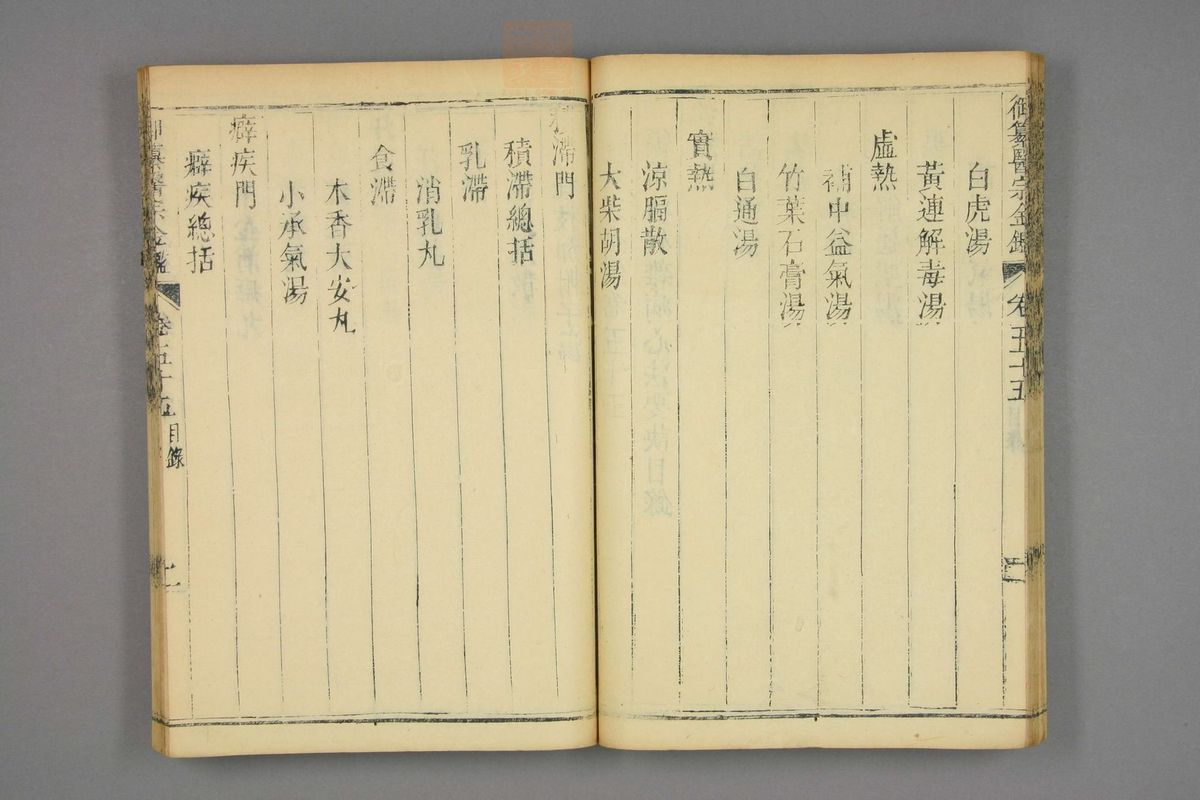 御纂醫宗金鑑 卷五十五
白虎湯
黃連解毒湯
虛熱
補中益氣湯
竹葉石膏湯
白通湯
實熱
涼膈散
大柴胡湯
積滯門
積滯總括
乳滯
消乳丸
食滯
木香大安丸
小承氣湯
癖疾門
癖疾總括
御纂醫宗金鑑 卷五十五 目錄 二